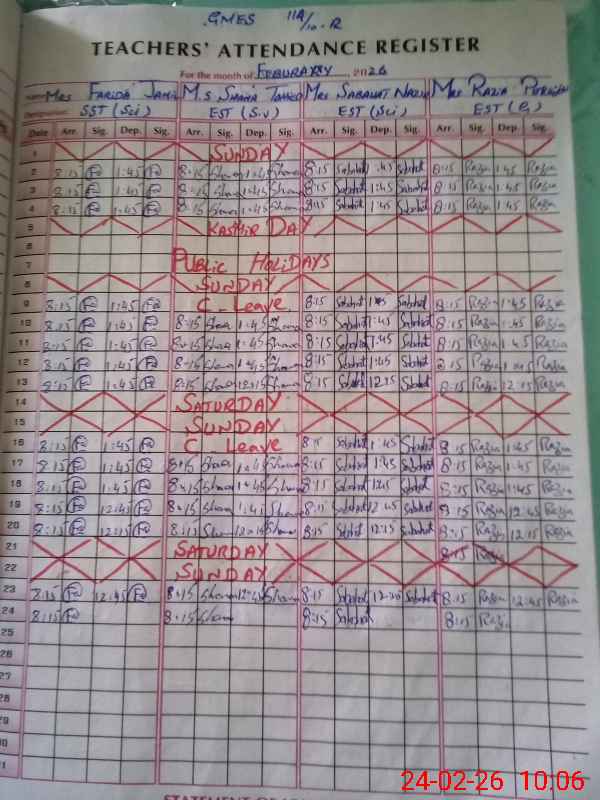 GMES 11A/10-R
TEACHERS' ATTENDANCE REGISTER
For the month of FEBURARY 2026
Name Mrs FARIDA M.S SHAMA Mrs SABAHAT NAZIR Mrs RAZIA
Designation SST (Sci) EST (S.V) EST (Sci) EST
Date Arr. Sig. Dep. Sig. Arr. Sig. Dep. Sig. Arr. Sig. Dep. Sig. Arr. Sig. Dep. Sig.
1 SUNDAY
2 8:15 1:45 8:15 Shama 1:45 Shama 8:15 Sabahat 1:45 Sabahat 8:15 Razia 1:45 Razia
3 8:15 1:45 8:15 Shama 1:45 Shama 8:15 Sabahat 1:45 Sabahat 8:15 Razia 1:45 Razia
4 8:15 1:45 8:15 Shama 1:45 Shama 8:15 Sabahat 1:45 Sabahat 8:15 Razia 1:45 Razia
5 KASHMIR DAY
6
7 PUBLIC HOLIDAYS
8 SUNDAY
9 8:15 1:45 C Leave 8:15 Sabahat 1:45 Sabahat 8:15 Razia 1:45 Razia
10 8:15 1:45 8:15 Shama 1:45 Shama 8:15 Sabahat 1:45 Sabahat 8:15 Razia 1:45 Razia
11 8:15 1:45 8:15 Shama 1:45 Shama 8:15 Sabahat 1:45 Sabahat 8:15 Razia 1:45 Razia
12 8:15 1:45 8:15 Shama 1:45 Shama 8:15 Sabahat 1:45 Sabahat 8:15 Razia Razia
13 8:15 1:45 8:15 Shama 12:15 Shama 8:15 Sabahat 12:15 Sabahat 8:15 Razia 12:15 Razia
14 SATURDAY
15 SUNDAY
16 8:15 1:45 C Leave 8:15 Sabahat 1:45 Sabahat 8:15 Razia 1:45 Razia
17 8:15 1:45 8:15 Shama 1:45 Shama 8:15 Sabahat 1:45 Sabahat 8:15 Razia 1:45 Razia
18 8:15 1:45 8:15 Shama 1:45 Shama 8:15 Sabahat Sabahat 8:15 Razia 1:45 Razia
19 8:15 12:45 8:15 Shama 1:45 Shama 8:15 Sabahat 12:45 Sabahat 8:15 Razia 12:45 Razia
20 8:15 12:15 8:15 Shama 12:15 Shama 8:15 Sabahat 12:15 Sabahat 8:15 Razia 12:15 Razia
21 SATURDAY 8:15 Razia
22 SUNDAY
23 8:15 12:45 8:15 Shama 12:45 Shama 8:15 Sabahat Sabahat 8:15 Razia 12:45 Razia
24 8:15 8:15 Shama 8:15 Sabahat 8:15 Razia
25
26
27
28
29
30
31
24-02-26 10:06